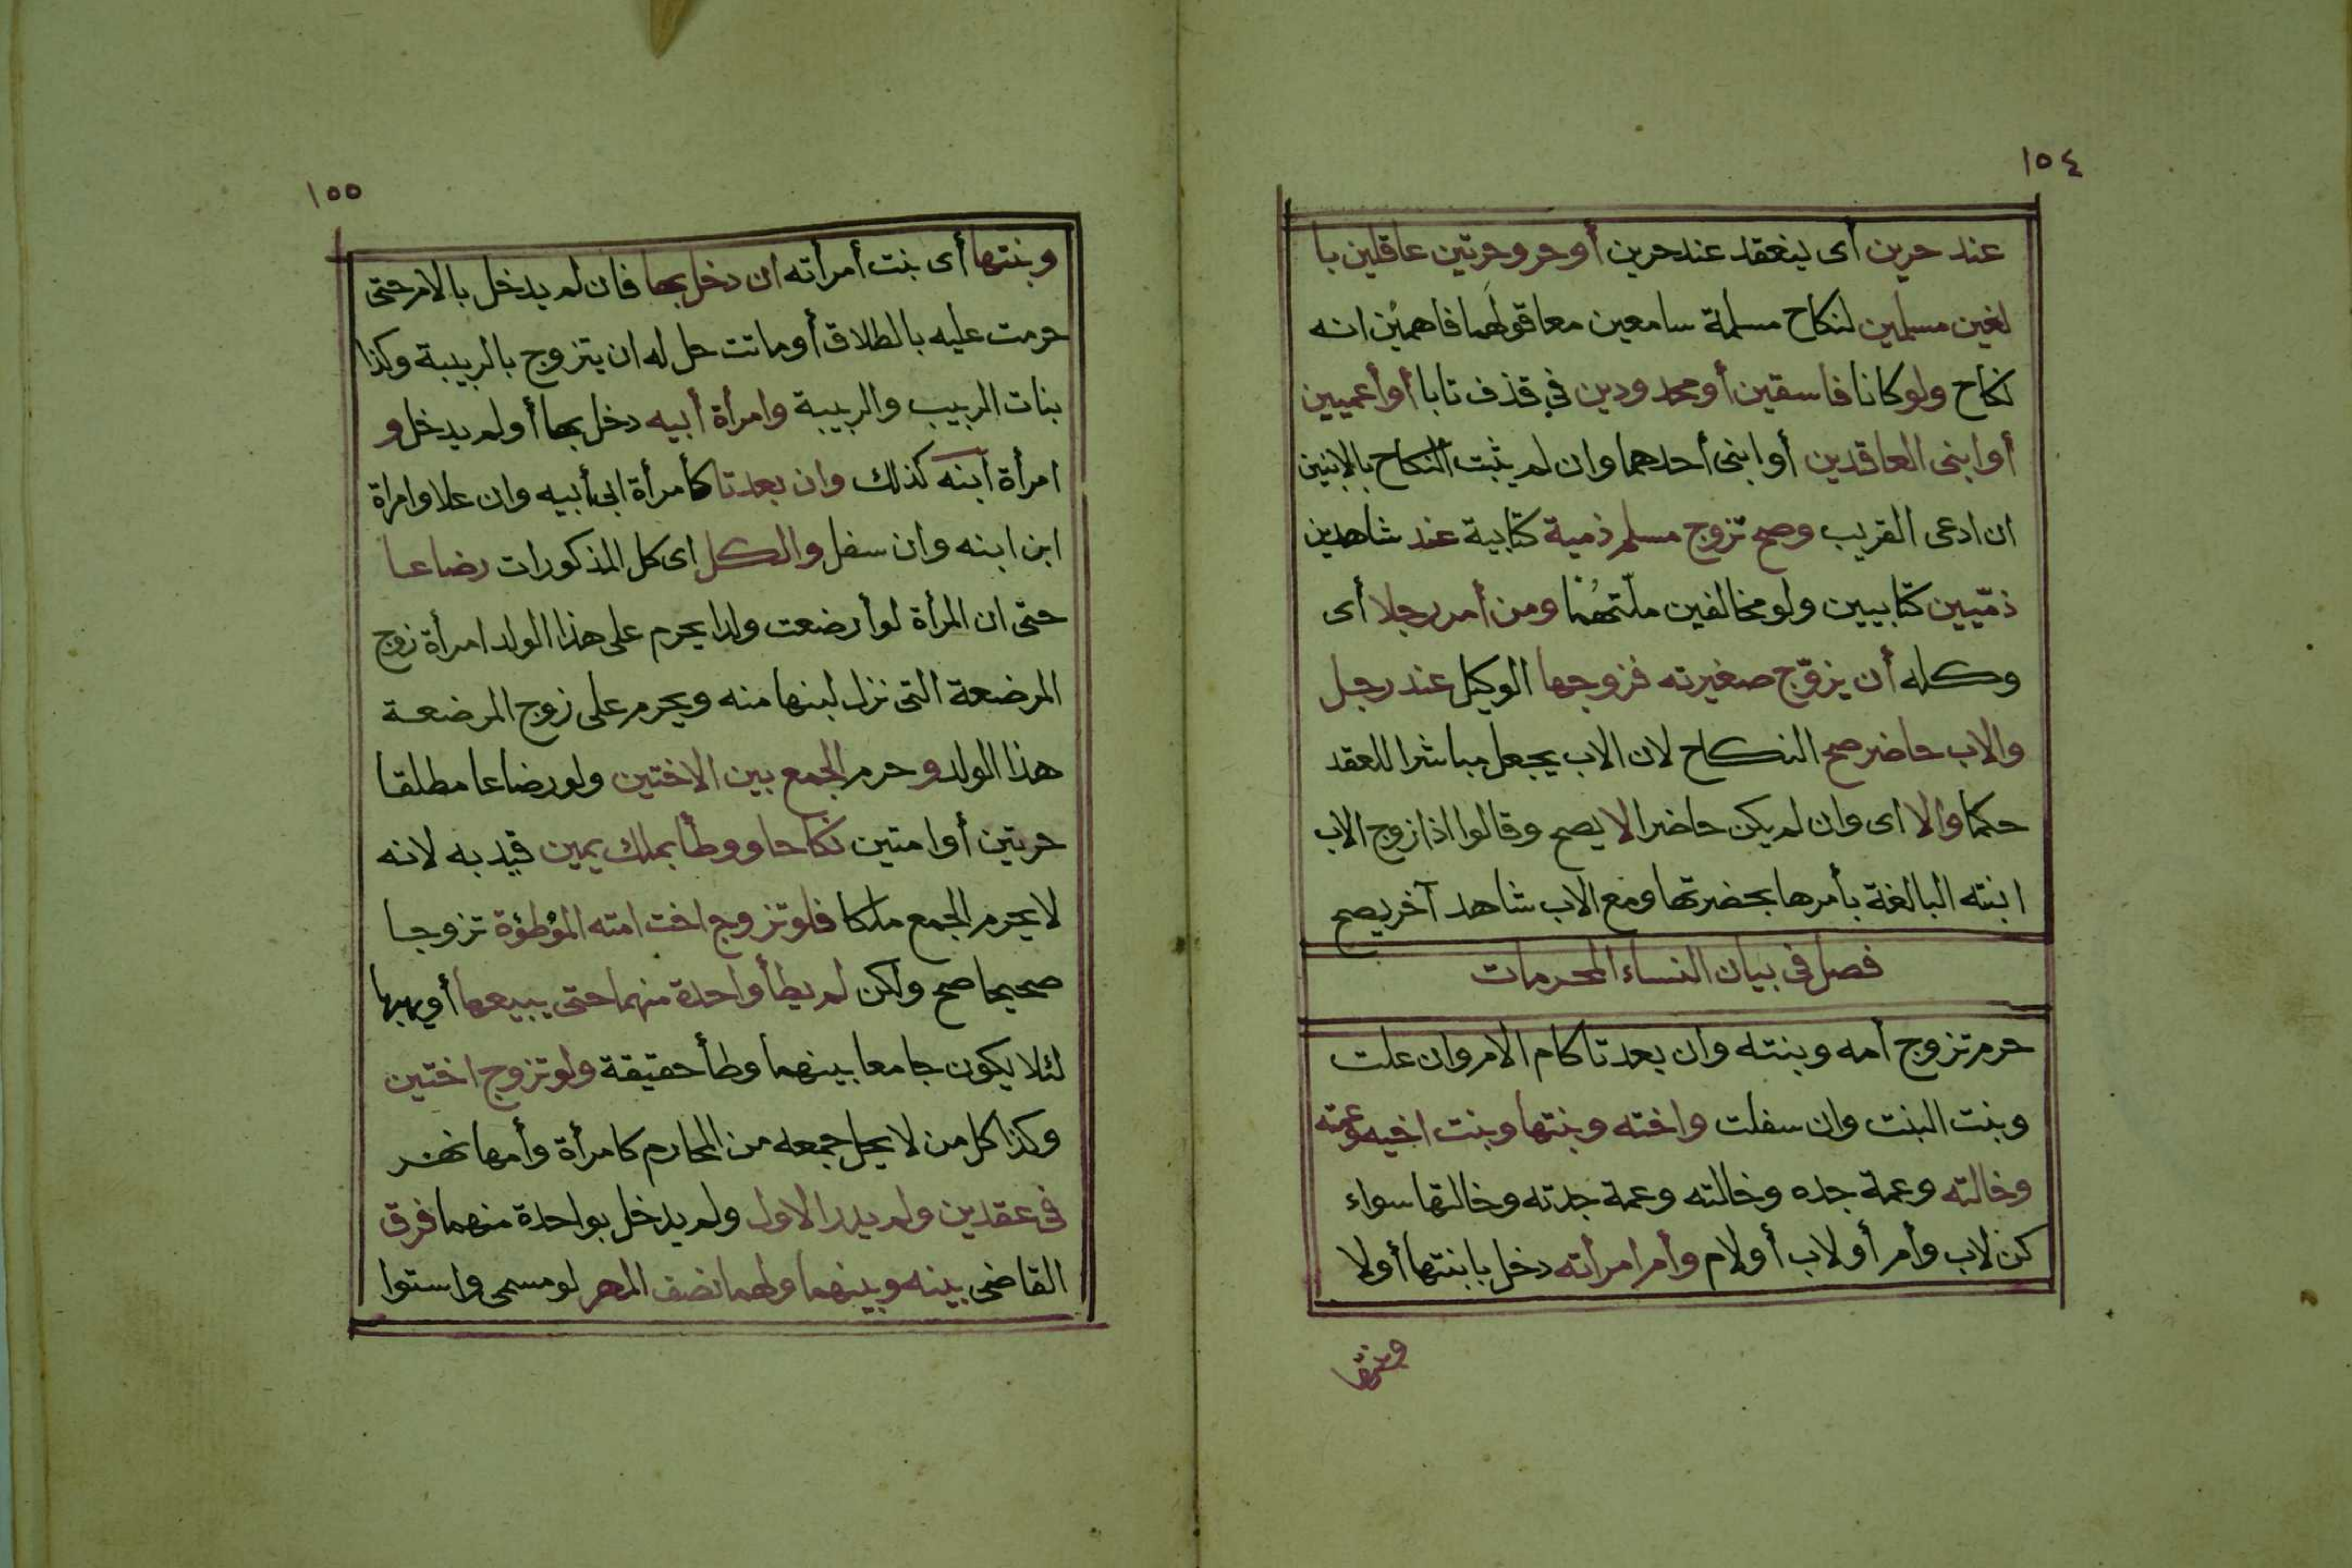 ١٥٤
عند حرين أى ينعقد عند حرين أو حر وحرتين عاقلين با
لغين مسلمين لنكاح مسلمة سامعين معا قولهما فاهمين انه
نكاح ولو كانا فاسقين أو محدودين في قذف تابا أو أعميين
أو ابنى العاقدين أو ابنى أحدهما وان لم يثبت النكاح بالابنين
ان ادعى القريب وصح تزوج مسلم ذمية كتابية عند شاهدين
ذمّيين كتابيين ولو مخالفين ملّتهُما ومن أمر رجلا أى
وكله أن يزوّج صغيرته فزوجها الوكيل عند رجل
والاب حاضر صح النكاح لان الاب يجعل مباشرا للعقد
حكما والا اى وان لم يكن حاضرا لا يصح وقالوا اذا زوج الاب
ابنته البالغة بأمرها بحضرتها ومع الاب شاهد آخر يصح
فصل فى بيان النساء المحرمات
حرم تزوج أمه وبنته وان بعدتا كام الام وان علت
وبنت البنت وان سفلت واخته وبنتها وبنت اخيه وعمته
وخالته وعمة جده وخالته وعمة جدته وخالتها سواء
كن لاب وأم أو لاب أو لام وأم امرأته دخل بابنتها أولا
وبنتها
١٥٥
وبنتها أى بنت أمرأته ان دخل بها فان لم يدخل بالام حتى
حرمت عليه بالطلاق أو ماتت حل له ان يتزوج بالربيبة وكذا
بنات الربيب والربيبة وامرأة أبيه دخل بها أو لم يدخل و
امرأة ابنه كذلك وان بعدتا كأمرأة ابى أبيه وان علا وامراة
ابن ابنه وان سفل والكل اى كل المذكورات رضاعا
حتى ان المرأة لو أرضعت ولدا يحرم على هذا الولد امرأة زوج
المرضعة التى نزل لبنها منه ويحرم على زوج المرضعة
هذا الولد و حرم الجمع بين الاختين ولو رضاعا مطلقا
حرتين أو امتين نكاحا ووطأ بملك يمين قيد به لانه
لا يحرم الجمع ملكا فلو تزوج اخت امته الموُطؤة تزوجا
صحيحا صح ولكن لم يطأ واحدة منهما حتى يبيعها أو يهبها
لئلا يكون جامعا بينهما وطأ حقيقة ولو تزوج اختين
وكذا كل من لا يحل جمعه من المحارم كامرأة وأمها نهر
فى عقدين ولم يدر الاول ولم يدخل بواحدة منهما فرق
القاضى بينه وبينهما ولهما نصف المهر لو مسمى واستوا